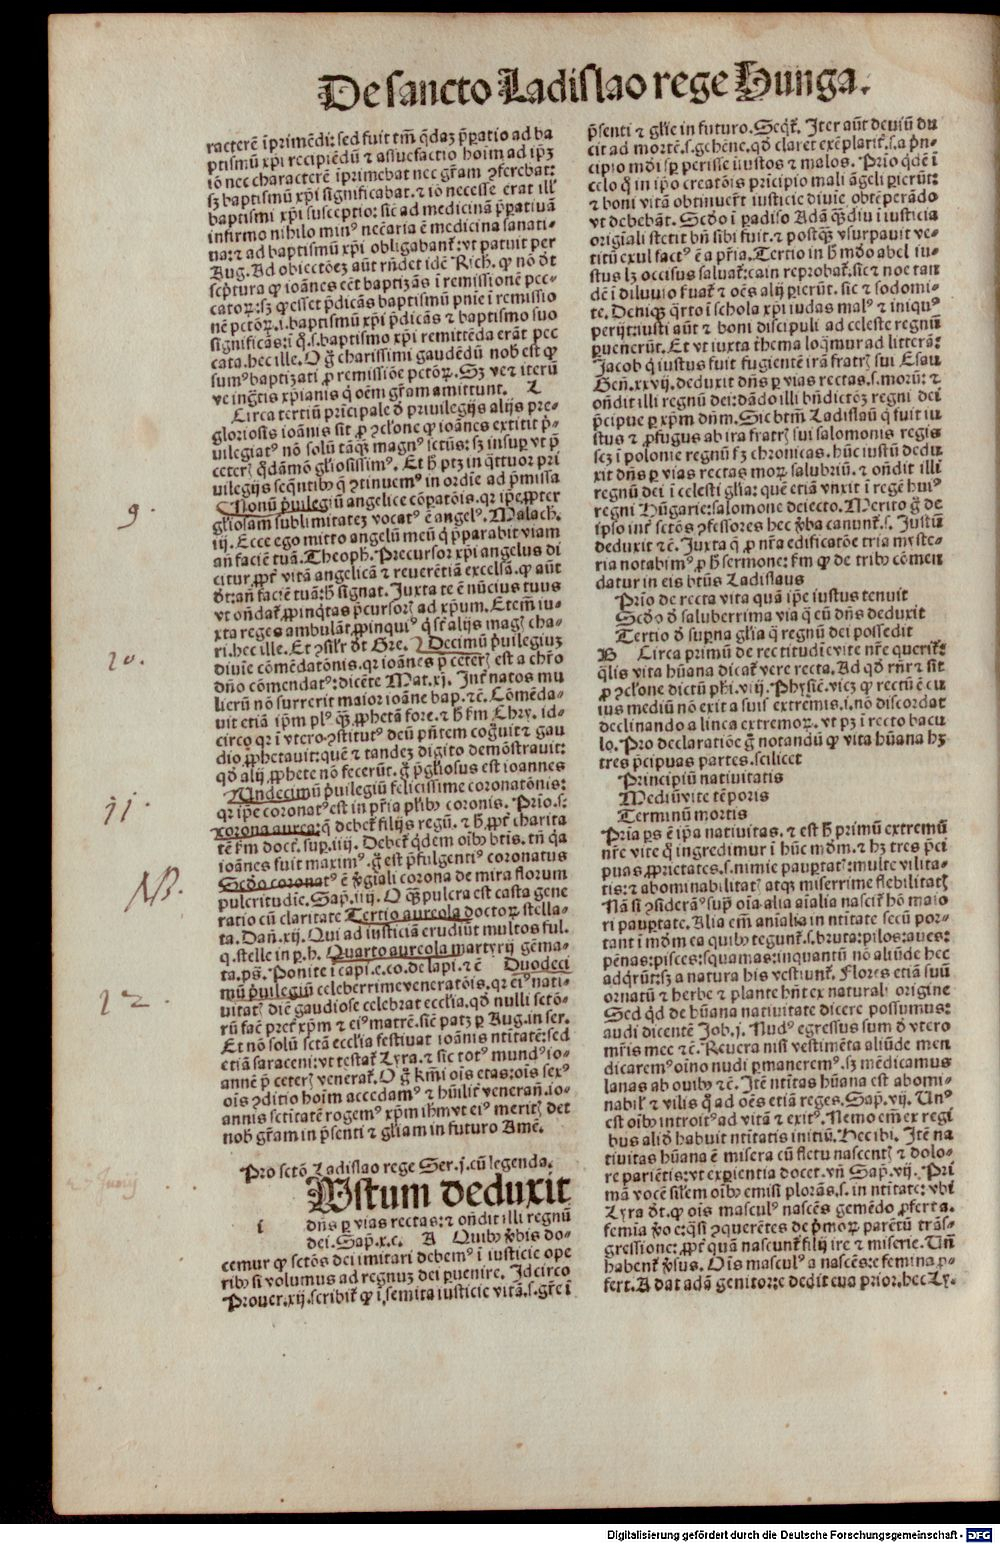 De sancto Ladislao rege Hunga.
racterē ī̄primēdi: sed fuit tm̄ q̄daz p̄paratio ad ba
ptismū xp̄i recipiēdū ⁊ assuefactio hoīm ad ip̄ꝫ
iō nec characterē īprimebat nec gr̄am ꝯferebat:
sꝫ baptismū xp̄i significabat. ⁊ iō necesse erat ill'
baptismi xp̄i susceptio: sic̄ ad medicinā p̄patiuā
infirmo nihilominꝰ nec̄aria ē medicina sanati-
ua: ⁊ ad baptismū xp̄i obligabant̄: vt patuit per
Aug. Ad obiectōeꝫ aūt rn̄det idē Rich. ꝙ nō dt̄
sc̄ptura ꝙ ioānes eēt baptizās ī remissionē pec-
catoꝝ: sꝫ ꝙ esset p̄dicās baptismū pn̄ie ī remissio
nē pctōꝝ. i. baptismū xp̄i p̄dicās ⁊ baptismo suo
significās: ī q̄. s. baptismo xp̄i remittēda erāt pec
cata. hec ille. O ḡ charissimi gaudēdū nob̄ est ꝙ
sumꝰ baptizati ꝓ remissiōe pctōꝝ. Sꝫ ve ⁊ iterū
ve ingr̄tis xp̄ianis q̄ oēm gr̄am amittunt.
Circa tertiū prīcipale d̄ priuilegijs alijs pre-
gloriosis ioānis sūt ꝓ ꝯclone ꝙ ioānes extitit p̄-
uilegiatꝰ nō solū tāꝙꝫ magnꝰ sctūs: sꝫ insuꝑ vt p̄
ceterꝭ q̄dāmō gl̄iosissimꝰ. Et h̄ ptꝫ in q̄ttuor pri
uilegijs seq̄ntibꝰ q̄ ꝯtinuemꝰ in ordīe ad p̄missa
Nonū p̄uilegiū angelice cōpatōis. qr ip̄e ꝓpter
gl̄iosam sublimitateꝫ vocatꝰ ē angelꝰ. Malach.
iij. Ecce ego mitto angelū meū q̄ p̄parabit viam
an̄ faciē tuā. Theoph. Precursor xp̄i angelus di
citur ꝓpt̄ vitā angelicā ⁊ reuerētiā excelsā. ꝙ aūt
dt̄: an̄ faciē tuā: h̄ signat. Juxta te ē nūcius tuus
vt on̄dat̄ ꝓpinq̄tas p̄cursorꝭ ad xp̄um. Etem̄ iu-
xta reges ambulāt ꝓpinquiꝰ q̄ st̄ alijs magꝭ cha-
ri. hec ille. Et ꝯsilr̄ dt̄ Gre. Decimū p̄uilegiuꝫ
diuīe cōmēdatōnis. qr ioānes p̄ ceterꝭ est a chr̄o
dn̄o cōmendatꝰ: dicēte Mat. xj. Int̄ natos mu
lierū nō surrexit maior ioāne bap. ⁊c̄. Cōmēda-
uit etiā ip̄m plꝰ ꝙꝫ ꝓphetā fore. ⁊ h̄ fm̄ Chry. id-
circo qr ī vtero ꝯstitutꝰ deū pn̄tem cog̅uit ⁊ gau
dio ꝓphetauit: quē ⁊ tandeꝫ digito demōstrauit:
qd̄ alij ꝓphete nō fecerūt. ḡ p̄gl̄iosus est ioannes
Undecimū p̄uilegiū felicissime coronatōnis:
qr ip̄e coronatꝰ est in pr̄ia pl̄ibꝰ coronis. Prīo. s.
corona aurea: q̄ debet̄ filijs regū. ⁊ h̄ ꝓpt̄ charita
tē fm̄ doct̄. suꝑ. iiij. Debet̄ q̄dem oībꝰ btīs. tn̄ q̄a
ioānes fuit maximꝰ. ḡ est p̄fulgentiꝰ coronatus
Scd̄o coronatꝰ ē v̄giali corona de mira florum
pulcritudīe. Sap. iiij. O ꝙꝫ pulcra est casta gene
ratio cū claritate Tertio aureola doctoꝝ stella-
ta. Dan̄. xij. Qui ad iusticiā erudiūt multos ful.
q. stelle in p. h. Quarto aureola martyrij gēma-
ta. ps̄. Ponite ī capi. e. co. de lapi. ⁊c̄ Duodeci
mū p̄uilegiū celeberrime veneratōis. qr eiꝰ nati-
uitatꝭ diē gaudiose celebrat eccl̄ia. qd̄ nulli sctō-
rū fac̄ pret̄ xp̄m ⁊ eiꝰ matrē. sic̄ patꝫ ꝑ Aug. in ser.
Et nō solū sctā eccl̄ia festiuat ioānis nt̄itatē: sed
etiā saraceni: vt testat̄ Lyra. ⁊ sic totꝰ mundꝰ io-
annē p̄ ceterꝭ venerat̄. O ḡ km̄i oīs etas: oīs sexꝰ
oīs ꝯditio hoīm accedamꝰ ⁊ hūilit̄ veneran̄. io-
annis sctitatē rogemꝰ xp̄m ih̄m vt eiꝰ meritꝭ det
nob̄ gr̄am in p̄senti ⁊ gl̄iam in futuro Amē.
Pro sctō Ladislao rege Ser. j. cū legenda.
Ustum deduxit
i dn̄s ꝑ vias rectas: ⁊ on̄dit illi regnū
dei. Sap. x. c. A Quibꝰ v̄bis do-
cemur ꝙ sctōs dei imitari debemꝰ ī iusticie ope
ribꝰ si volumus ad regnuꝫ dei ꝑuenire. Idcirco
Prouer. xij. scribit̄ ꝙ ī semita iusticie vitā. s. gr̄e ī
p̄senti ⁊ gl̄ie in futuro. Seqt̄. Iter aūt deuiū du
cit ad mortē. s. gehēne. qd̄ claret exēplarit̄. s. a p̄n-
cipio mūdi sꝑ perisse iniustos ⁊ malos. Prīo q̄dē ī
celo q̄ in ip̄o creatōis prīcipio mali āgeli ꝑierūt:
⁊ boni vitā obtinuer̄t iusticie diuīe obtēperādo
vt debebāt. Scd̄o ī ꝑadiso Adā ꝙꝫdiu ī iusticia
origīali stetit bn̄ sibi fuit. ⁊ postꝙꝫ vsurpauit ve-
titū exul fact̄ ē a pr̄ia. Tertio in h̄ mūdo abel iu-
stus lꝫ occisus saluat̄: cain reprobat̄. sic̄ ⁊ noe tan
dē ī diluuio ẜuat̄ ⁊ oēs alij ꝑierūt. sic ⁊ sodomi-
te. Deniqꝫ q̄rto ī schola xp̄i iudas malꝰ ⁊ iniquꝰ
perijt: iusti aūt ⁊ boni discipuli ad celeste regnū
ꝑuenerūt. Et vt iuxta thema loq̄mur ad litterā:
Jacob q̄ iustus fuit fugientē irā fratrꝭ sui Esau
Gen̄. xxvij. deduxit dn̄s ꝑ vias rectas. s. morū: ⁊
on̄dit illi regnū dei: dādo illi bn̄dictōeꝫ regni dei
p̄cipue ꝑ xp̄m dn̄m. Sic btm̄ Ladislaū q̄ fuit iu
stus ⁊ ꝓfugus ab ira fratrꝭ sui salomonis regis
scꝫ ī polonie regnū fꝫ chronicas. hūc iustū dedu
xit dn̄s ꝑ vias rectas moꝝ salubriū. ⁊ on̄dit illi
regnū dei ī celesti gl̄ia: quē etiā vnxit ī regē huiꝰ
regni Hūgarie: salomone deiecto. Merito ḡ de
ipso int̄ sctōs ꝯfessores hec v̄ba canunt̄. s. Justū
deduxit ⁊c̄. Juxta q̄ ꝓ nr̄a edificatōe tria myste-
ria notabimꝰ ꝑ h̄ sermone: fm̄ ꝙ de tribꝰ cōmen
datur in eis btūs Ladislaus
Prīo de recta vita quā ip̄e iustus tenuit
Scd̄o d̄ saluberrima via q̄ cū dn̄s deduxit
Tertio d̄ suꝑna gl̄ia q̄ regnū dei possedit
B Circa primū de rectitudīe vite nr̄e querit̄:
q̄lis vita hūana dicat̄ vere recta. Ad qd̄ rn̄r ⁊ sit
ꝓ ꝯclone dictū ph̄i. viij. Physic̄. vicꝫ ꝙ rectū ē cu
ius mediū nō exit a suis extremis. s. nō discordat
declinando a linea extremoꝝ. vt pꝫ ī recto bacu
lo. Pro declaratiōe ḡ notandū ꝙ vita hūana hꝫ
tres p̄cipuas partes. scilicet
Principiū natiuitatis
Mediū vite tēporis
Terminū mortis
Pria ꝑs ē ip̄a natiuitas. ⁊ est h̄ primū extremū
nr̄e vite q̄ ingredimur ī hūc mūdm̄. ⁊ hꝫ tres p̄ci
puas ꝓprietates. s. nimie pauꝑtatꝭ: multe vilita-
tis: ⁊ abominabilitatꝭ atqꝫ miserrime flebilitatꝭ
Nā si ꝯsiderāꝰ suꝑ oīa alia aīalia nascit̄ hō maio
ri pauꝑtate. Alia em̄ anīalia in nt̄itate secū por-
tant ī mūdm̄ ea quibꝰ tegunt̄. s. bruta: pilos: aues:
pēnas: pisces: squamas: inquantū nō aliūde hec
adq̄rūt: sꝫ a natura his vestiunt̄. Flores etiā suū
ornatū ⁊ herbe ⁊ plante hn̄t ex naturali origine
Sed qd̄ de hūana natiuitate dicere possumus:
audi dicentē Job. j. Nudꝰ egressus sum d̄ vtero
mr̄is mee ⁊c̄. Reuera nisi vestimēta aliūde men
dicaremꝰ oīno nudi ꝑmaneremꝰ. sꝫ mēdicamus
lanas ab ouibꝰ ⁊c̄. Itē nt̄itas hūana est abomi-
nabil' ⁊ vilis q̄ ad oēs etiā reges. Sap. vij. Unꝰ
est oībꝰ introitꝰ ad vitā ⁊ exitꝰ. Nemo em̄ ex regi
bus aliud habuit nt̄itatis initiū. Hec ibi. Itē na
tiuitas hūana ē misera cū fletu nascentꝭ ⁊ dolo-
re pariētis: vt exꝑientia docet. vn̄ Sap. vij. Pri
mā vocē sil̄em oībꝰ emisi plorās. s. in nt̄itate: vbi
Lyra dt̄. ꝙ oīs masculꝰ nascēs gemēdo ꝓfert a.
femīa v̄o e: q̄si ꝯquerētes de p̄moꝝ parētū trās-
gressione: ꝓpt̄ quā nascunt̄ filij ire ⁊ miserie. Un̄
habent̄ v̄sus. Oīs masculꝰ a nascēs: e femina ꝓ-
fert. A dat adā genitor: e dedit eua prior. hec Ly.
9.
10.
11.
NB.
12.
27 Junij
Digitalisierung gefördert durch die Deutsche Forschungsgemeinschaft - DFG